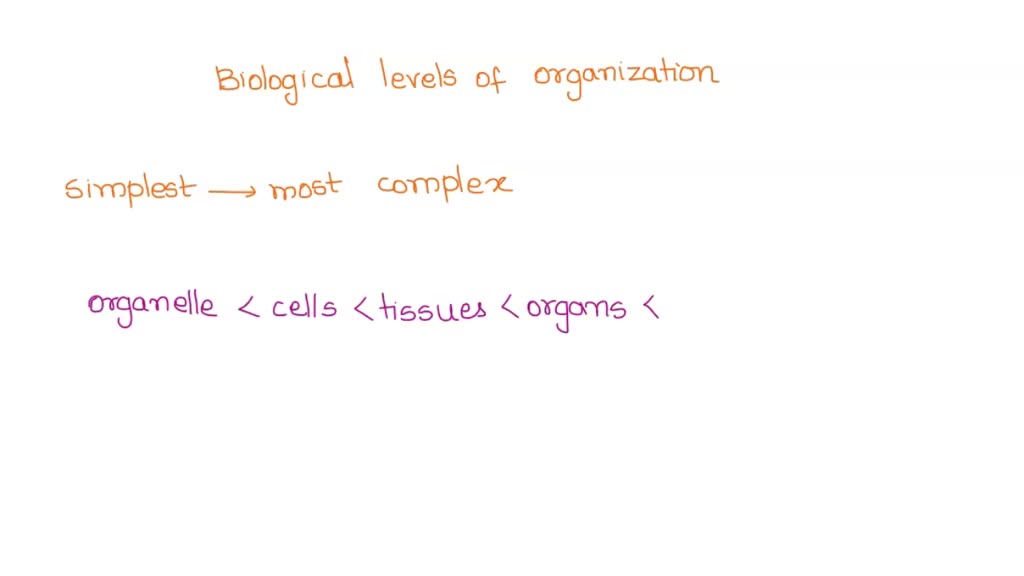 Biological levels of organization
simplest → most complex
organelle < cells < tissues < organs <